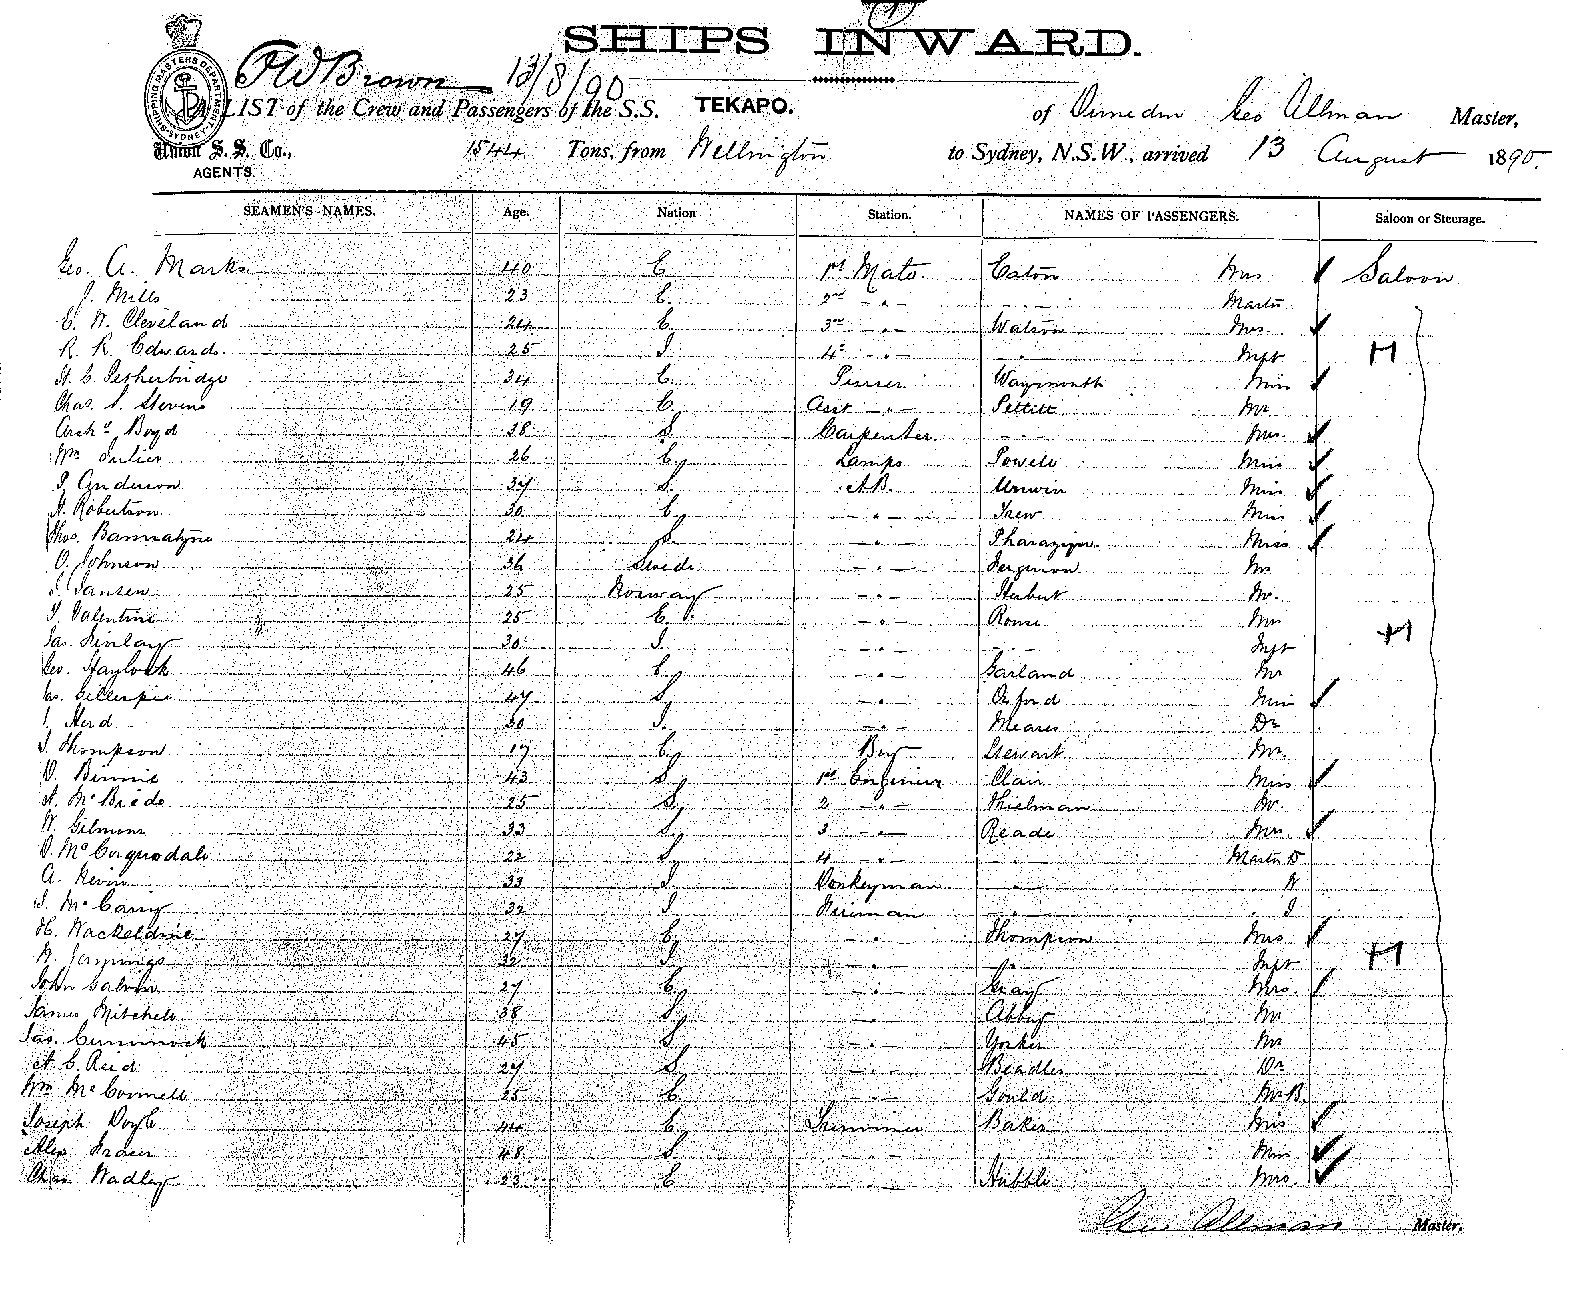 SHIPS INWARD.
SHIPPING MASTERS DEPARTMENT SYDNEY
Brown 13/8/90
A LIST of the Crew and Passengers of the S.S. TEKAPO. of Dunedin Geo Allman Master,
Union S. S. Co., 1544 Tons, from Wellington to Sydney, N.S.W., arrived 13 August 1890.
AGENTS.
SEAMEN'S NAMES. Age. Nation Station. NAMES OF PASSENGERS. Saloon or Steerage.
Geo. A. Marks 40 E 1st Mate Eaton Mrs ✓ Saloon
J. Mills 23 E. 2nd - " - - " - Master
E. W. Cleveland 24 E. 3rd - " - Watson Mrs ✓
R. R. Edwards. 25 I. 4th - " - - " - Inft H
H. C. Petherbridge 34 E. Purser Waymouth Miss ✓
Chas. S. Stevens 19 E. Asst - " - Pettitt Mr.
Archd Boyd 38 S. Carpenter. - " - Mrs. ✓
Wm 26 E. Lamps Powell Miss ✓
Anderson 37 S. A.B. Unwin Miss ✓
H. Robertson 30 E. - " - Trew Miss ✓
Thos. Bannatyne 24 S. - " - Pharazyn. Miss ✓
O. Johnson 36 Swede - " - Ferguson Mr
Jansen 25 Norway - " - Herbert Mr.
Valentine 25 E. - " - Rouse Mrs
Jas. Finlay 30 I. - " - - " - Inft H
Geo. Haylock 46 E. - " - Garland Mr
Jas. Gillespie 47 S. - " - Oxford Miss ✓
Herd 30 I. - " - Meares Dr
J. Thompson 17 E. Boy Stewart Mr.
D. Binnie 43 S. 1st Engineer Clair Miss ✓
A. McBride 25 S. 2 - " - Thielman Dr
W. Gilmour 33 S. 3 - " - Reade Mrs. ✓
D. McCorquodale 22 S. 4 - " - - " - Master D
A. Nevin 33 I. Donkeyman - " - " W
J. 32 I. Fireman - " - " J
H. 27 E. - " - Thompson Mrs ✓
W. Jennings 32 I. - " - - " - Inft H
John Galvin 27 E. - " - Gray Mrs. ✓
James Mitchell 38 S. - " - Abbey Mr
Jas. Cummock 45 S. - " - Yorker Mr
A. C. Reid 27 S. - " - Beadles Dr
Wm. McConnell 25 E. - " - Gould Mr B.
Joseph Doyle 44 E. Trimmer Baker Miss ✓
Alex Fraser 48 S. - " - Miss ✓
Chas Wadley 23 E - " - Hubble Mrs. ✓
Geo Allman Master.